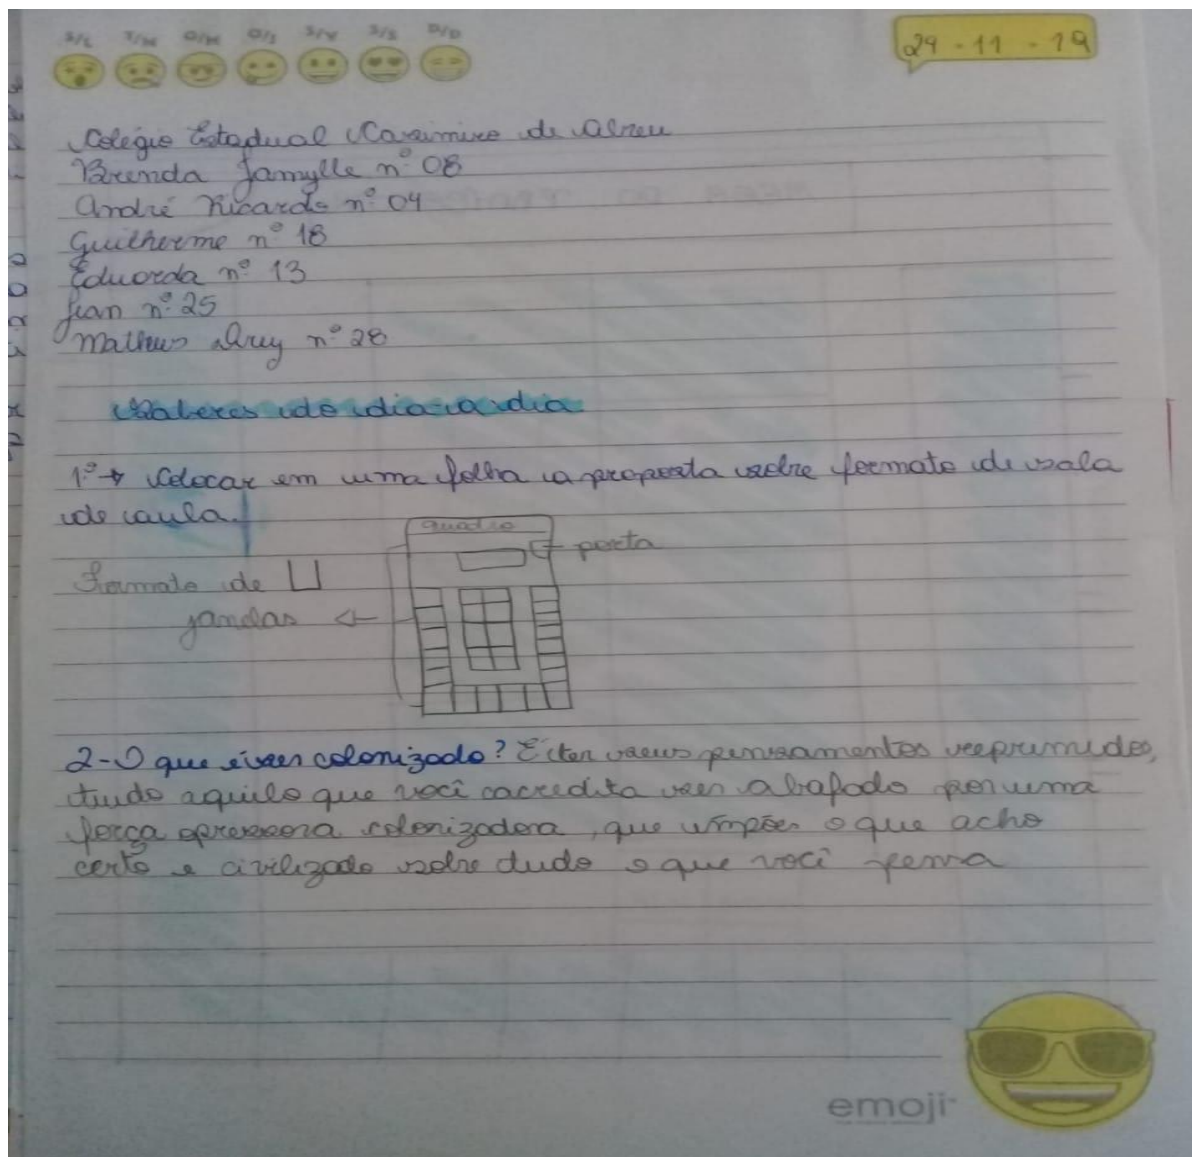 D/S T/M M/O T/O V/S S/S D/D
29 - 11 - 19
Colégio Estadual Casimiro de Abreu
Brenda Jamylle nº 08
André Ricardo nº 04
Guilherme nº 18
Eduarda nº 13
Jean nº 25
Matheus Ary nº 28
Saberes do dia a dia
1º → Colocar em uma folha a proposta sobre formato de sala
de aula.
quadro
porta
Formato de U
janelas
2-O que é ser colonizado? É ter seus pensamentos reprimidos,
tudo aquilo que você acredita ser abafado por uma
força opressora colonizadora, que impões o que acho
certo e civilizado sobre tudo o que você pensa
emoji